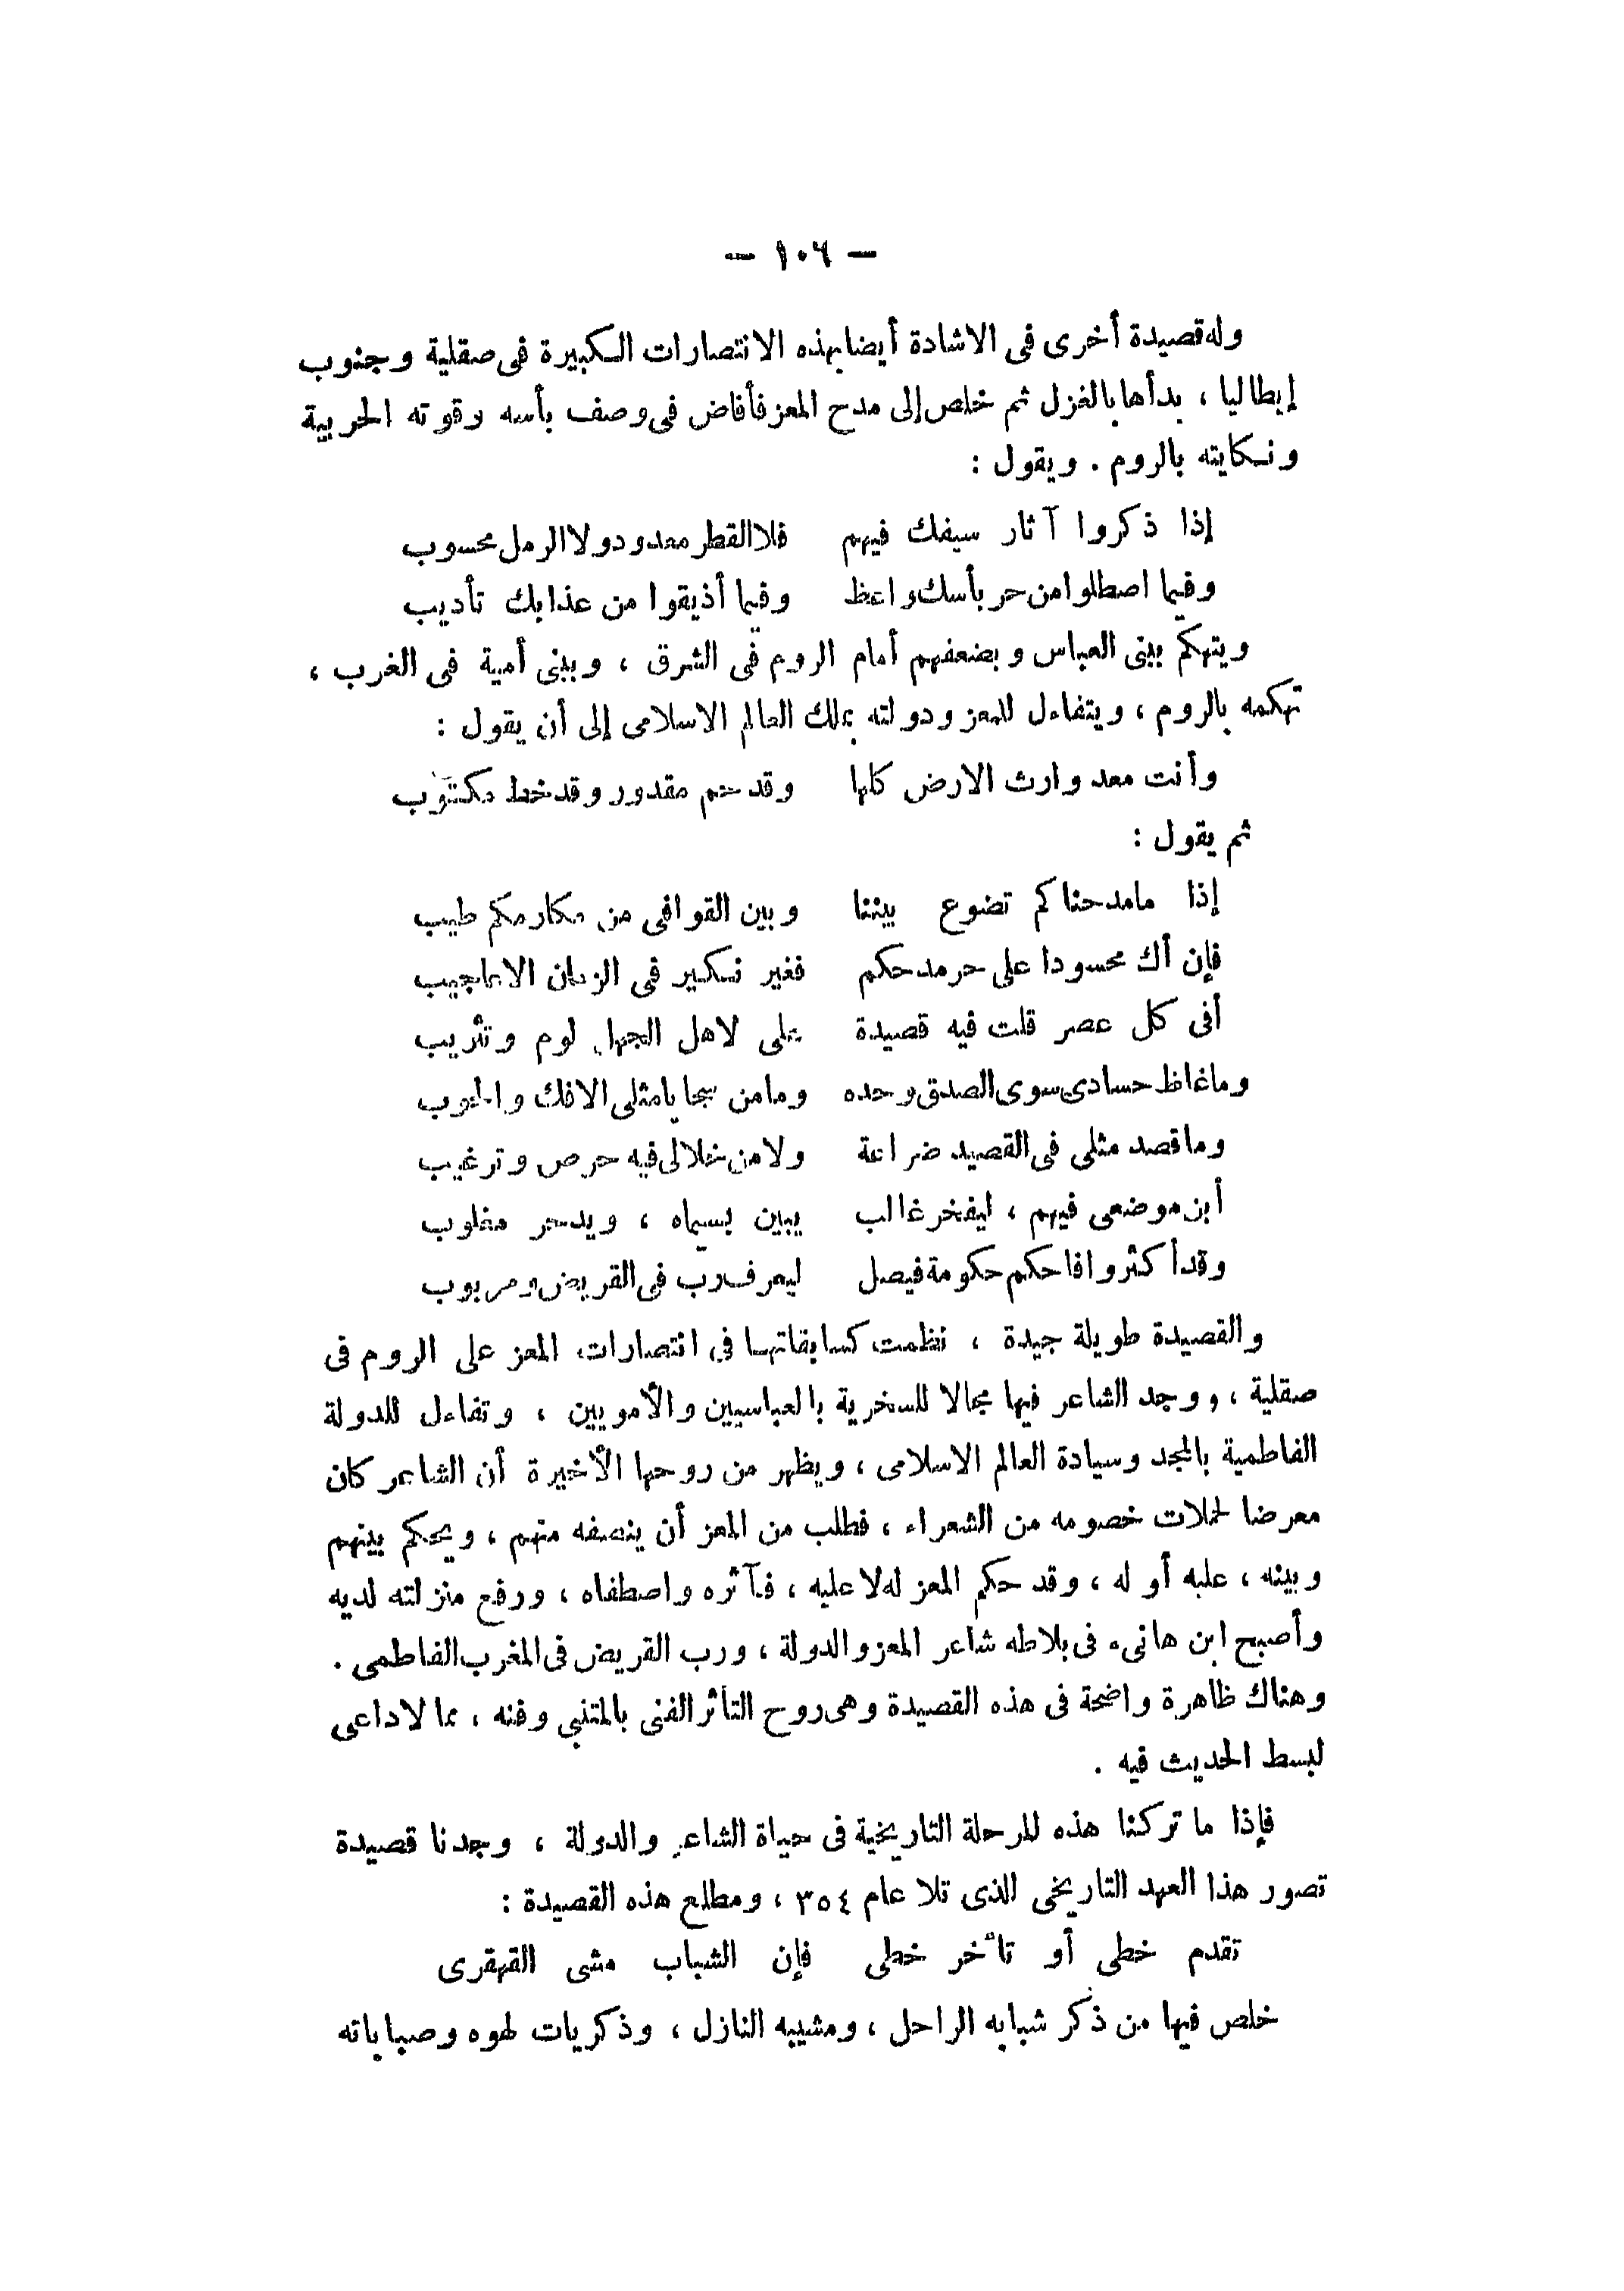 — ١٠٦ —
وله قصيدة أخرى فى الاشادة أيضا بهذه الانتصارات الكبيرة فى صقلية وجنوب
إيطاليا ، بدأها بالغزل ثم خلص إلى مدح المعز فأفاض فى وصف بأسه وقوته الحربية
ونكايته بالروم . ويقول :
إذا ذكروا آثار سيفك فيهم فلا القطر معدود ولا الرمل محسوب
وفيما اصطلوا من حر بأسك واعظ وفيما أذيقوا من عذابك تأديب
ويتهكم ببنى العباس وبضعفهم أمام الروم فى الشرق ، وببنى أمية فى الغرب ،
تهكمه بالروم ، ويتفاءل للمعز ودولته بملك العالم الاسلامى إلى أن يقول :
وأنت معد وارث الارض كلها وقد حم مقدور وقد خط مكتوب
ثم يقول :
إذا مامدحناكم تضوع بيننا وبين القوافى من مكارمكم طيب
فإن أك محسودا على حر مدحكم فغير نكير فى الزمان الاعاجيب
أفى كل عصر قلت فيه قصيدة على لاهل الجهل لوم وتثريب
وماغاظ حسادى سوى الصدق وحده ومامن سجايا مثلى الافك والحوب
وماقصد مثلى فى القصيد ضراعة ولا من خلالى فيه حرص وترغيب
أبن موضعى فيهم ، ليفخر غالب يبين بسيماه ، ويدحر مغلوب
وقد أكثروا فاحكم حكومة فيصل ليعرف رب فى القريض ومربوب
والقصيدة طويلة جيدة ، نظمت كسابقاتها فى انتصارات المعز على الروم فى
صقلية ، ووجد الشاعر فيها مجالا للسخرية بالعباسيين والأمويين ، وتفاءل للدولة
الفاطمية بالمجد وسيادة العالم الاسلامى ، ويظهر من روحها الأخيرة أن الشاعر كان
معرضا لحملات خصومه من الشعراء ، فطلب من المعز أن ينصفه منهم ، ويحكم بينهم
وبينه ، عليه أو له ، وقد حكم المعز له لا عليه ، فآثره واصطفاه ، ورفع منزلته لديه
وأصبح ابن هانىء فى بلاطه شاعر المعز والدولة ، ورب القريض فى المغرب الفاطمى .
وهناك ظاهرة واضحة فى هذه القصيدة وهى روح التأثر الفنى بالمتنبي وفنه ، مما لا داعى
لبسط الحديث فيه .
فإذا ما تركنا هذه المرحلة التاريخية فى حياة الشاعر والدولة ، وجدنا قصيدة
تصور هذا العهد التاريخى الذى تلا عام ٣٥٤ ، ومطلع هذه القصيدة :
تقدم خطى أو تأخر خطى فإن الشباب مشى القهقرى
خلص فيها من ذكر شبابه الراحل ، ومشيبه النازل ، وذكريات لهوه وصباباته